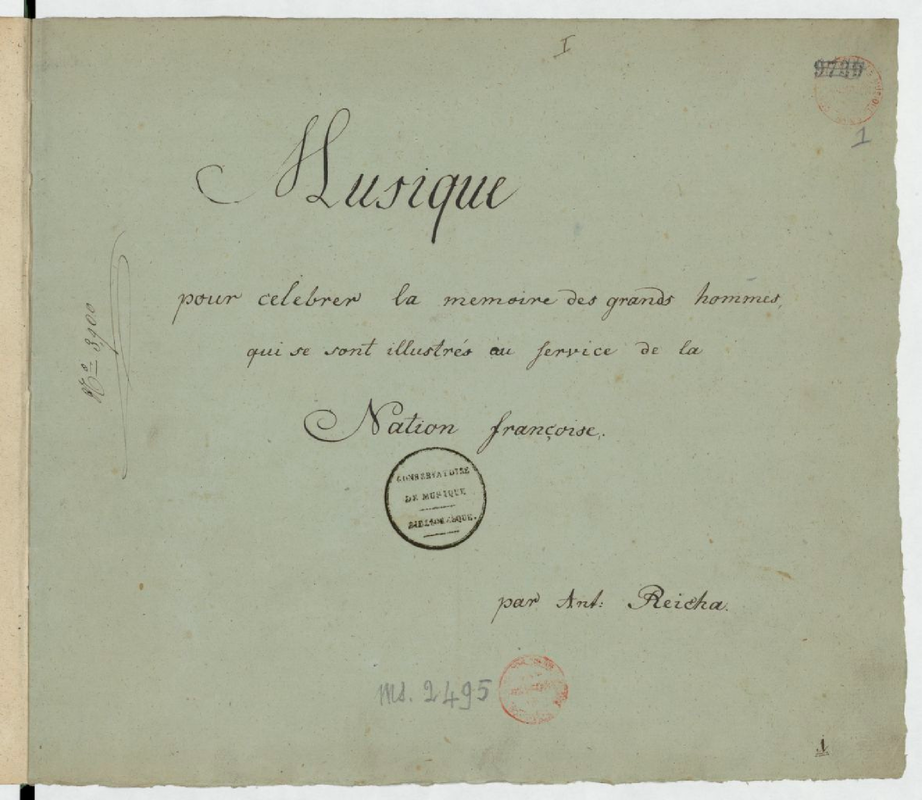 I
9739
1
Musique
pour celebrer la memoire des grands hommes,
qui se sont illustrés au service de la
Nation françoise.
N.º 3900
CONSERVATOIRE
DE MUSIQUE
BIBLIOTHEQUE.
par Ant: Reicha.
ms. 2495
1